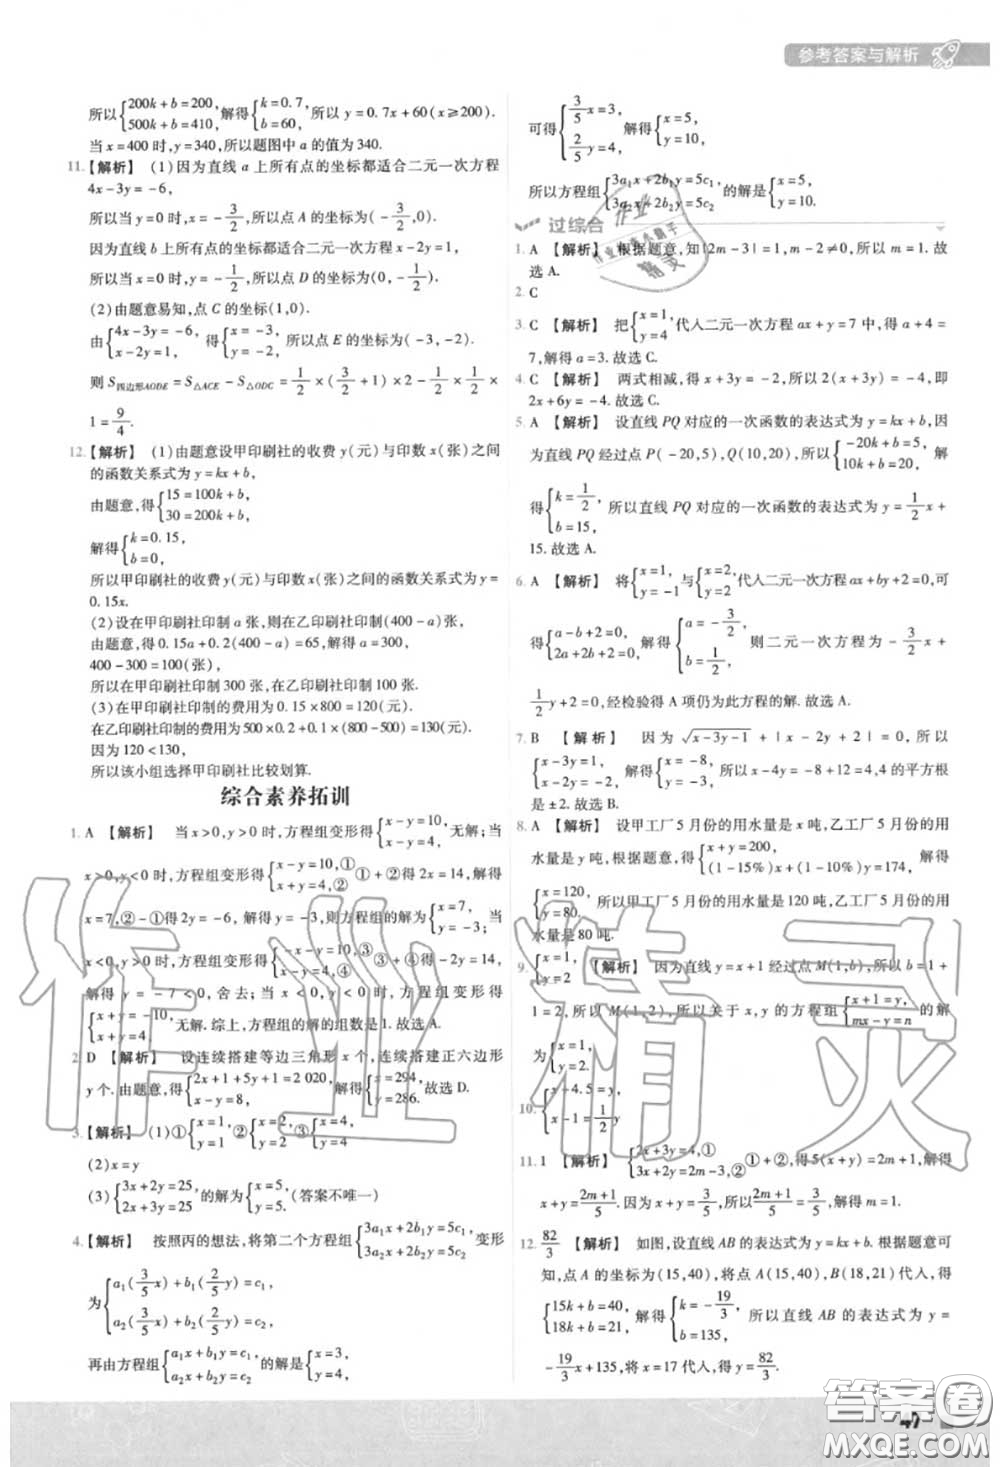 参考答案与解析
所以{200k+b=200, 500k+b=410, 解得{k=0.7, b=60, 所以 y=0.7x+60(x≥200).
当 x=400 时,y=340,所以题图中 a 的值为 340.
11.【解析】 (1)因为直线 a 上所有点的坐标都适合二元一次方程
4x-3y=-6,
所以当 y=0 时,x=-3/2,所以点 A 的坐标为(-3/2,0).
因为直线 b 上所有点的坐标都适合二元一次方程 x-2y=1,
所以当 x=0 时,y=-1/2,所以点 D 的坐标为(0,-1/2).
(2)由题意易知,点 C 的坐标(1,0).
由{4x-3y=-6, x-2y=1, 得{x=-3, y=-2, 所以点 E 的坐标为(-3,-2).
则 S四边形AODE=S△ACE-S△ODC=1/2×(3/2+1)×2-1/2×1/2×
1=9/4.
12.【解析】 (1)由题意设甲印刷社的收费 y(元)与印数 x(张)之间
的函数关系式为 y=kx+b,
由题意,得{15=100k+b, 30=200k+b,
解得{k=0.15, b=0,
所以甲印刷社的收费 y(元)与印数 x(张)之间的函数关系式为 y=
0.15x.
(2)设在甲印刷社印制 a 张,则在乙印刷社印制(400-a)张,
由题意,得 0.15a+0.2(400-a)=65,解得 a=300,
400-300=100(张),
所以在甲印刷社印制 300 张,在乙印刷社印制 100 张.
(3)在甲印刷社印制的费用为 0.15×800=120(元).
在乙印刷社印制的费用为 500×0.2+0.1×(800-500)=130(元).
因为 120<130,
所以该小组选择甲印刷社比较划算.
综合素养拓训
1. A 【解析】 当 x>0,y>0 时,方程组变形得{x-y=10, x-y=4, 无解;当
x>0,y<0 时,方程组变形得{x-y=10,① x+y=4,② ①+②得 2x=14,解得
x=7,②-①得 2y=-6,解得 y=-3,则方程组的解为{x=7, y=-3; 当
x<0,y>0 时,方程组变形得{-x-y=10,③ x+y=4,④ ③+④得-2y=14,
解得 y=-7<0,舍去;当 x<0,y<0 时,方程组变形得
{x+y=-10, 无解.综上,方程组的解的组数是 1.故选 A.
2. D 【解析】 设连续搭建等边三角形 x 个,连续搭建正六边形
y 个.由题意,得{2x+1+5y+1=2 020, x-y=8, 解得{x=294, y=286. 故选 D.
3.【解析】 (1)①{x=1, y=1, ②{x=2, y=2, ③{x=4, y=4.
(2)x=y
(3){3x+2y=25, 2x+3y=25, 的解为{x=5, y=5. (答案不唯一)
4.【解析】 按照丙的想法,将第二个方程组{3a₁x+2b₁y=5c₁, 3a₂x+2b₂y=5c₂ 变形
为{a₁(3/5x)+b₁(2/5y)=c₁, a₂(3/5x)+b₂(2/5y)=c₂.
再由方程组{a₁x+b₁y=c₁, a₂x+b₂y=c₂ 的解是{x=3, y=4,
可得{3/5x=3, 2/5y=4, 解得{x=5, y=10,
所以方程组{3a₁x+2b₁y=5c₁, 3a₂x+2b₂y=5c₂ 的解是{x=5, y=10.
过综合
1. A 【解析】 根据题意,知|2m-3|=1,m-2≠0,所以 m=1.故
选 A.
2. C
3. C 【解析】 把{x=1, y=4, 代入二元一次方程 ax+y=7 中,得 a+4=
7,解得 a=3.故选 C.
4. C 【解析】 两式相减,得 x+3y=-2,所以 2(x+3y)=-4,即
2x+6y=-4.故选 C.
5. A 【解析】 设直线 PQ 对应的一次函数的表达式为 y=kx+b,因
为直线 PQ 经过点 P(-20,5),Q(10,20),所以{-20k+b=5, 10k+b=20, 解
得{k=1/2, b=15, 所以直线 PQ 对应的一次函数的表达式为 y=1/2x+
15.故选 A.
6. A 【解析】 将{x=1, y=-1 与{x=2, y=2 代入二元一次方程 ax+by+2=0,可
得{a-b+2=0, 2a+2b+2=0, 解得{a=-3/2, b=1/2, 则二元一次方程为-3/2x+
1/2y+2=0,经检验得 A 项仍为此方程的解.故选 A.
7. B 【解析】 因为 √(x-3y-1)+|x-2y+2|=0,所以
{x-3y=1, x-2y=-2, 解得{x=-8, y=-3, 所以 x-4y=-8+12=4,4 的平方根
是±2.故选 B.
8. A 【解析】 设甲工厂 5 月份的用水量是 x 吨,乙工厂 5 月份的用
水量是 y 吨,根据题意,得{x+y=200, (1-15%)x+(1-10%)y=174, 解得
{x=120, y=80. 所以甲工厂 5 月份的用水量是 120 吨,乙工厂 5 月份的用
水量是 80 吨.
9. {x=1, y=2 【解析】 因为直线 y=x+1 经过点 M(1,b),所以 b=1+
1=2,所以 M(1,2),所以关于 x,y 的方程组{x+1=y, mx-y=n 的解
为{x=1, y=2.
10. {x-4.5=y, x-1=1/2y
11. 1 【解析】 {2x+3y=4,① 3x+2y=2m-3,② ①+②,得 5(x+y)=2m+1,所以
x+y=(2m+1)/5.因为 x+y=3/5,所以(2m+1)/5=3/5,解得 m=1.
12. 82/3 【解析】 如图,设直线 AB 的表达式为 y=kx+b.根据题意可
知,点 A 的坐标为(15,40),将点 A(15,40),B(18,21)代入,得
{15k+b=40, 18k+b=21, 解得{k=-19/3, b=135, 所以直线 AB 的表达式为 y=
-19/3x+135,将 x=17 代入,得 y=82/3.
47
作业精灵
答案圈
MXQE.COM